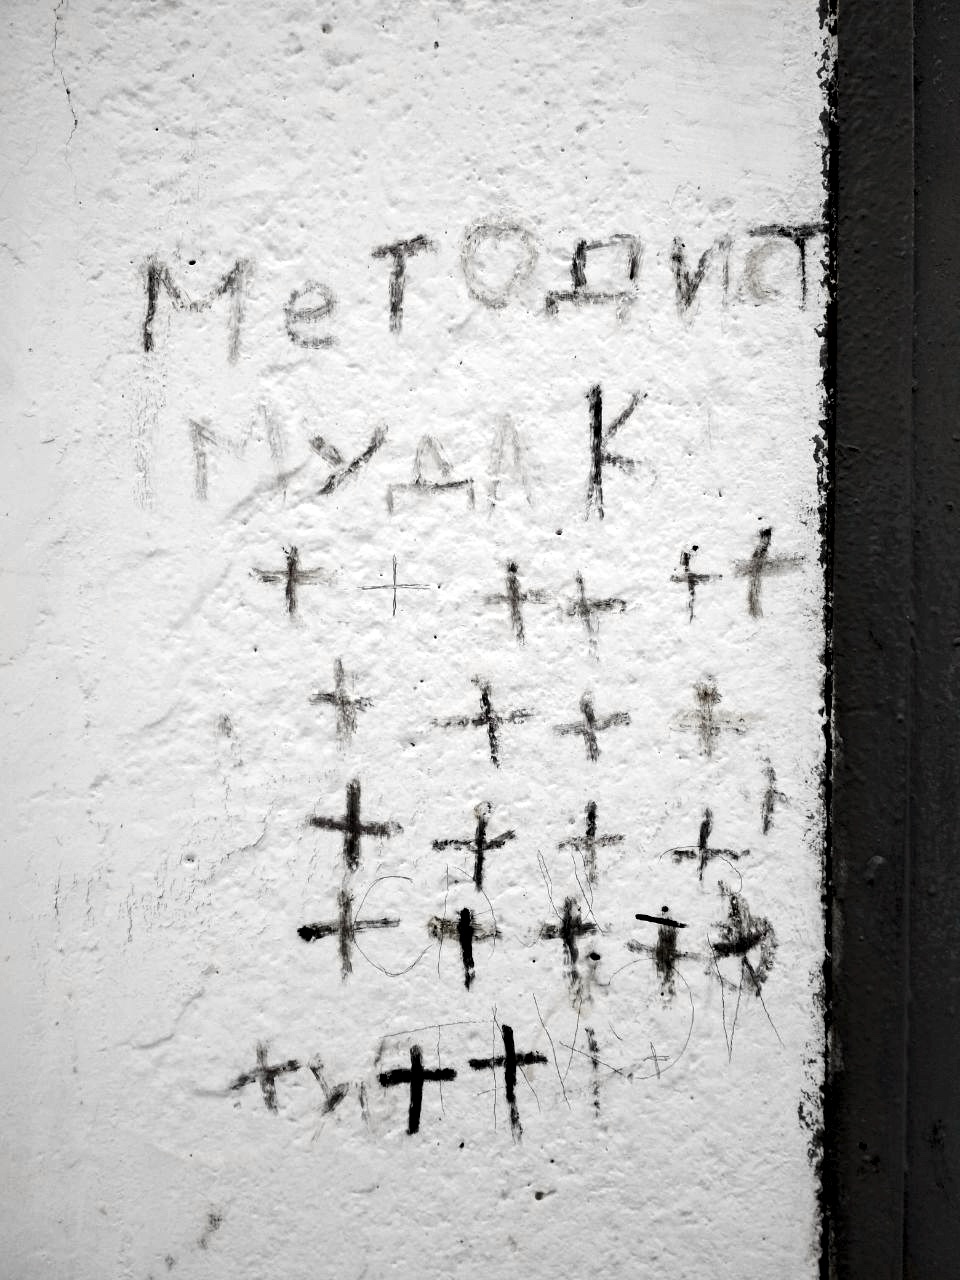 Методист
мудак
+ + + + + +
+ + + +
+ + + + +
+ + + + +
+ + +